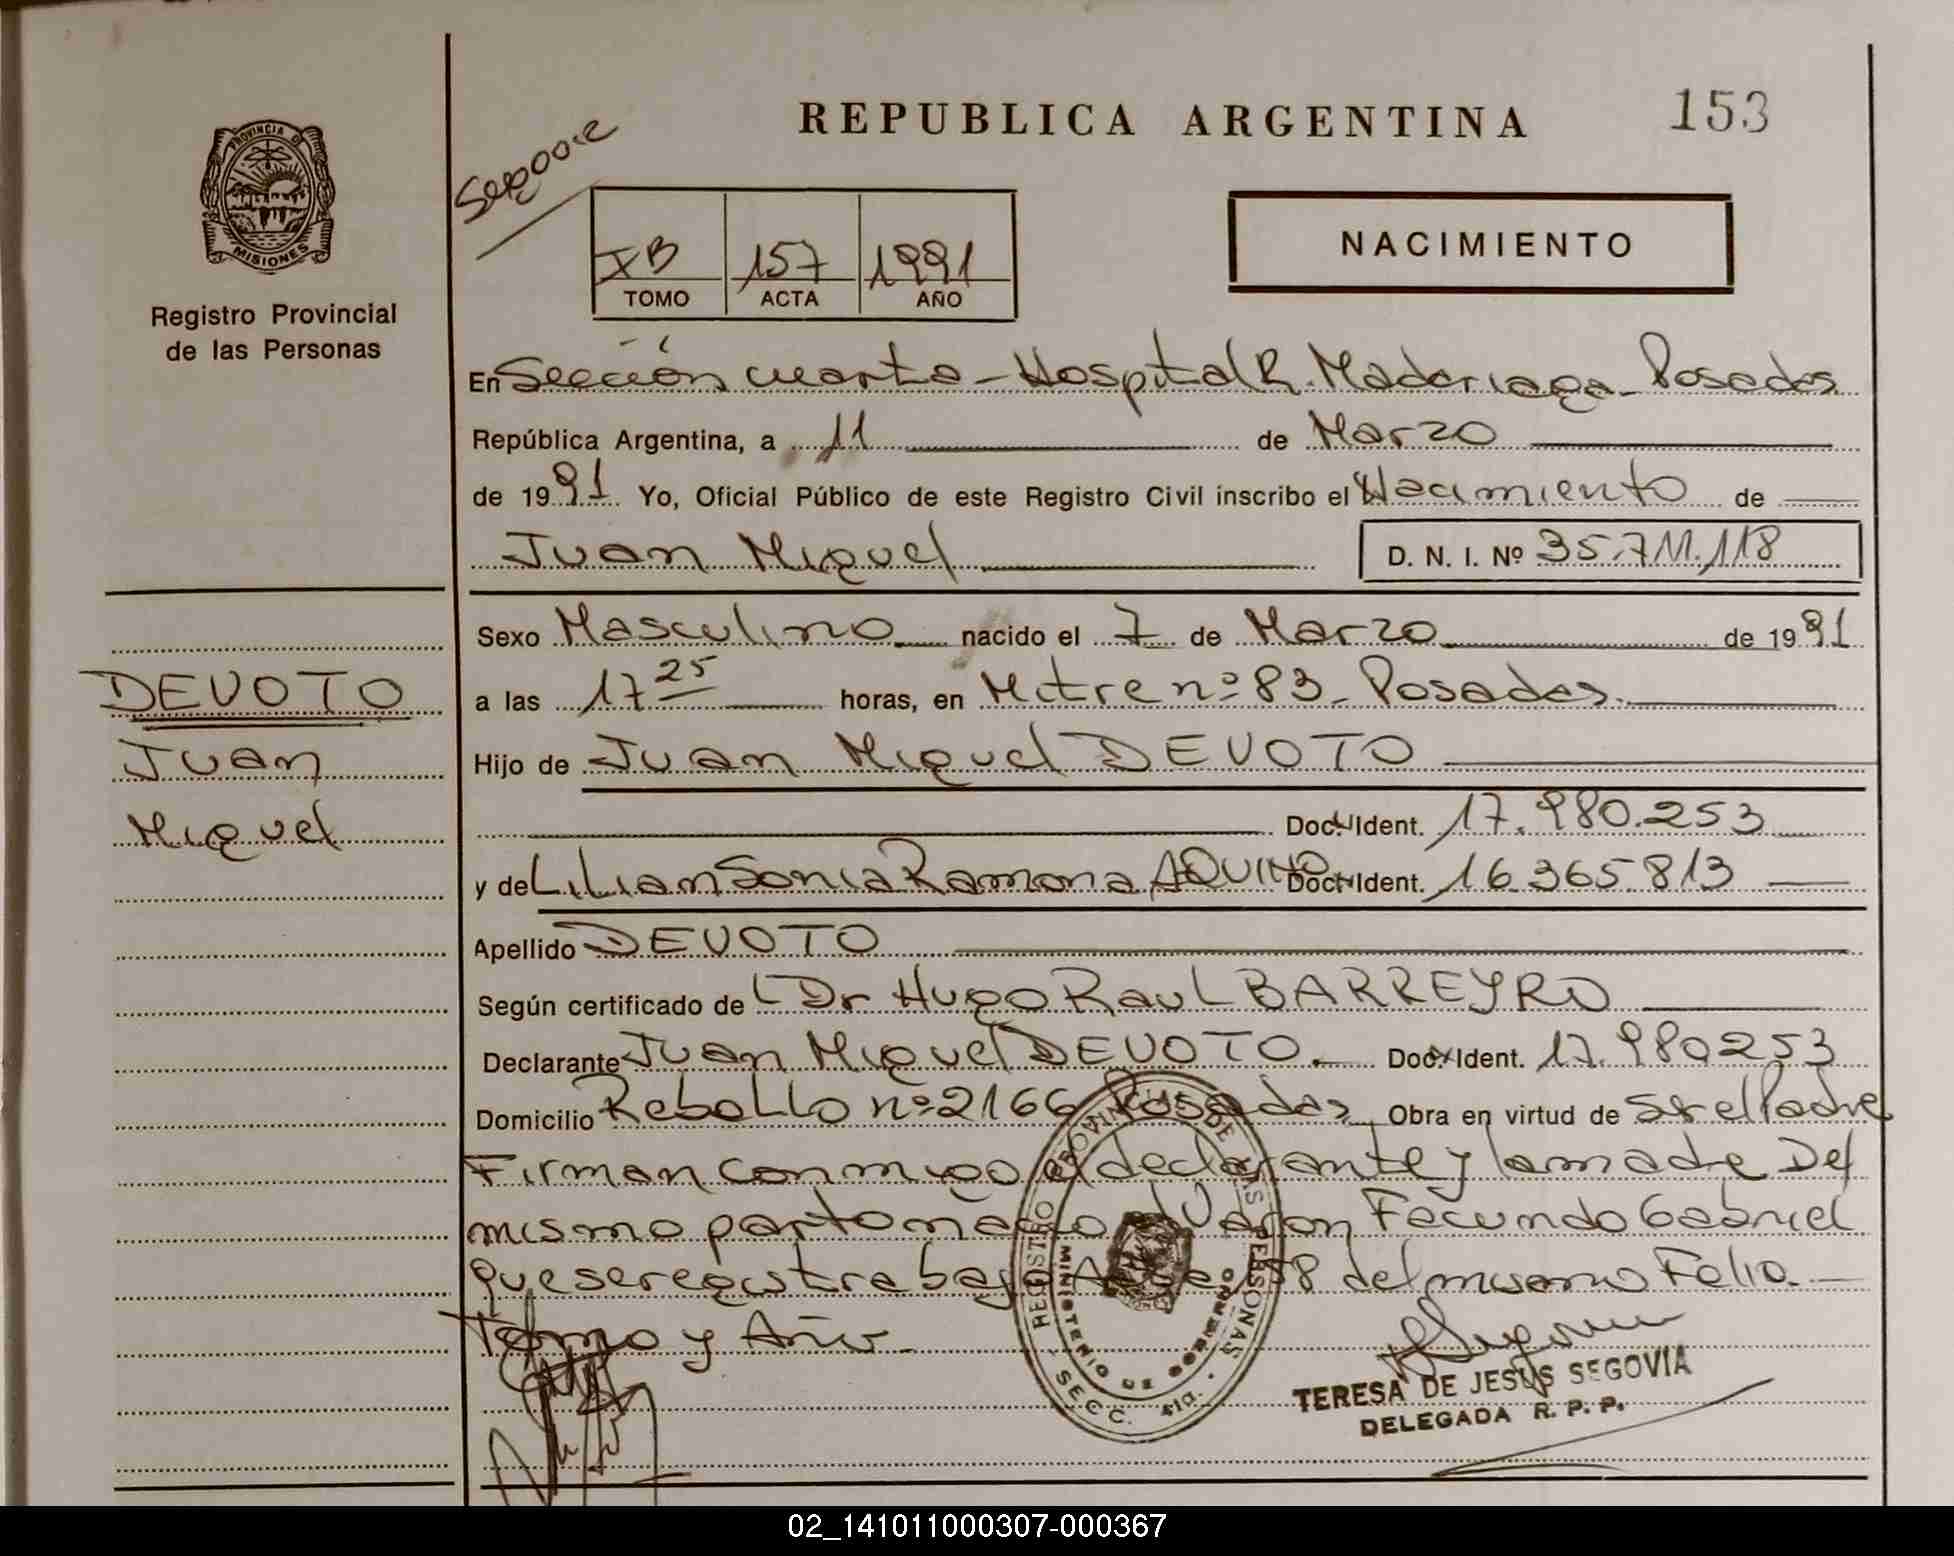 REPUBLICA ARGENTINA
153
PROVINCIA D
MISIONES
Registro Provincial
de las Personas
IB 157 1991
TOMO ACTA AÑO
NACIMIENTO
En Sección cuarta - Hospital R. Madariaga - Posadas
República Argentina, a 11 de Marzo
de 1991 Yo, Oficial Público de este Registro Civil inscribo el Nacimiento de
Juan Miguel D. N. I. Nº 35.711.118
Sexo Masculino nacido el 7 de Marzo de 1991
DEVOTO
Juan
Miguel
a las 17 25 horas, en Mitre nº 83 - Posadas.
Hijo de Juan Miguel DEVOTO
Doc. Ident. 17.980.253
y de Lilian Sonia Ramona AQUINO Doc. Ident. 16.365.813
Apellido DEVOTO
Según certificado de L Dr Hugo Raul BARREYRO
Declarante Juan Miguel DEVOTO. Doc. Ident. 17.980253
Domicilio Rebollo nº 2166 Posadas Obra en virtud de Ser el Padre
Firman conmigo el declarante y la madre Del
mismo parto nacio el Varon Facundo Gabriel
que se registra bajo Acta 158 del mismo Folio.
Tomo y Año.
REGISTRO PROVINCIAL DE LAS PERSONAS
MINISTERIO DE GOBIERNO
SECC. 4ta.
TERESA DE JESUS SEGOVIA
DELEGADA R. P. P.
02_141011000307-000367